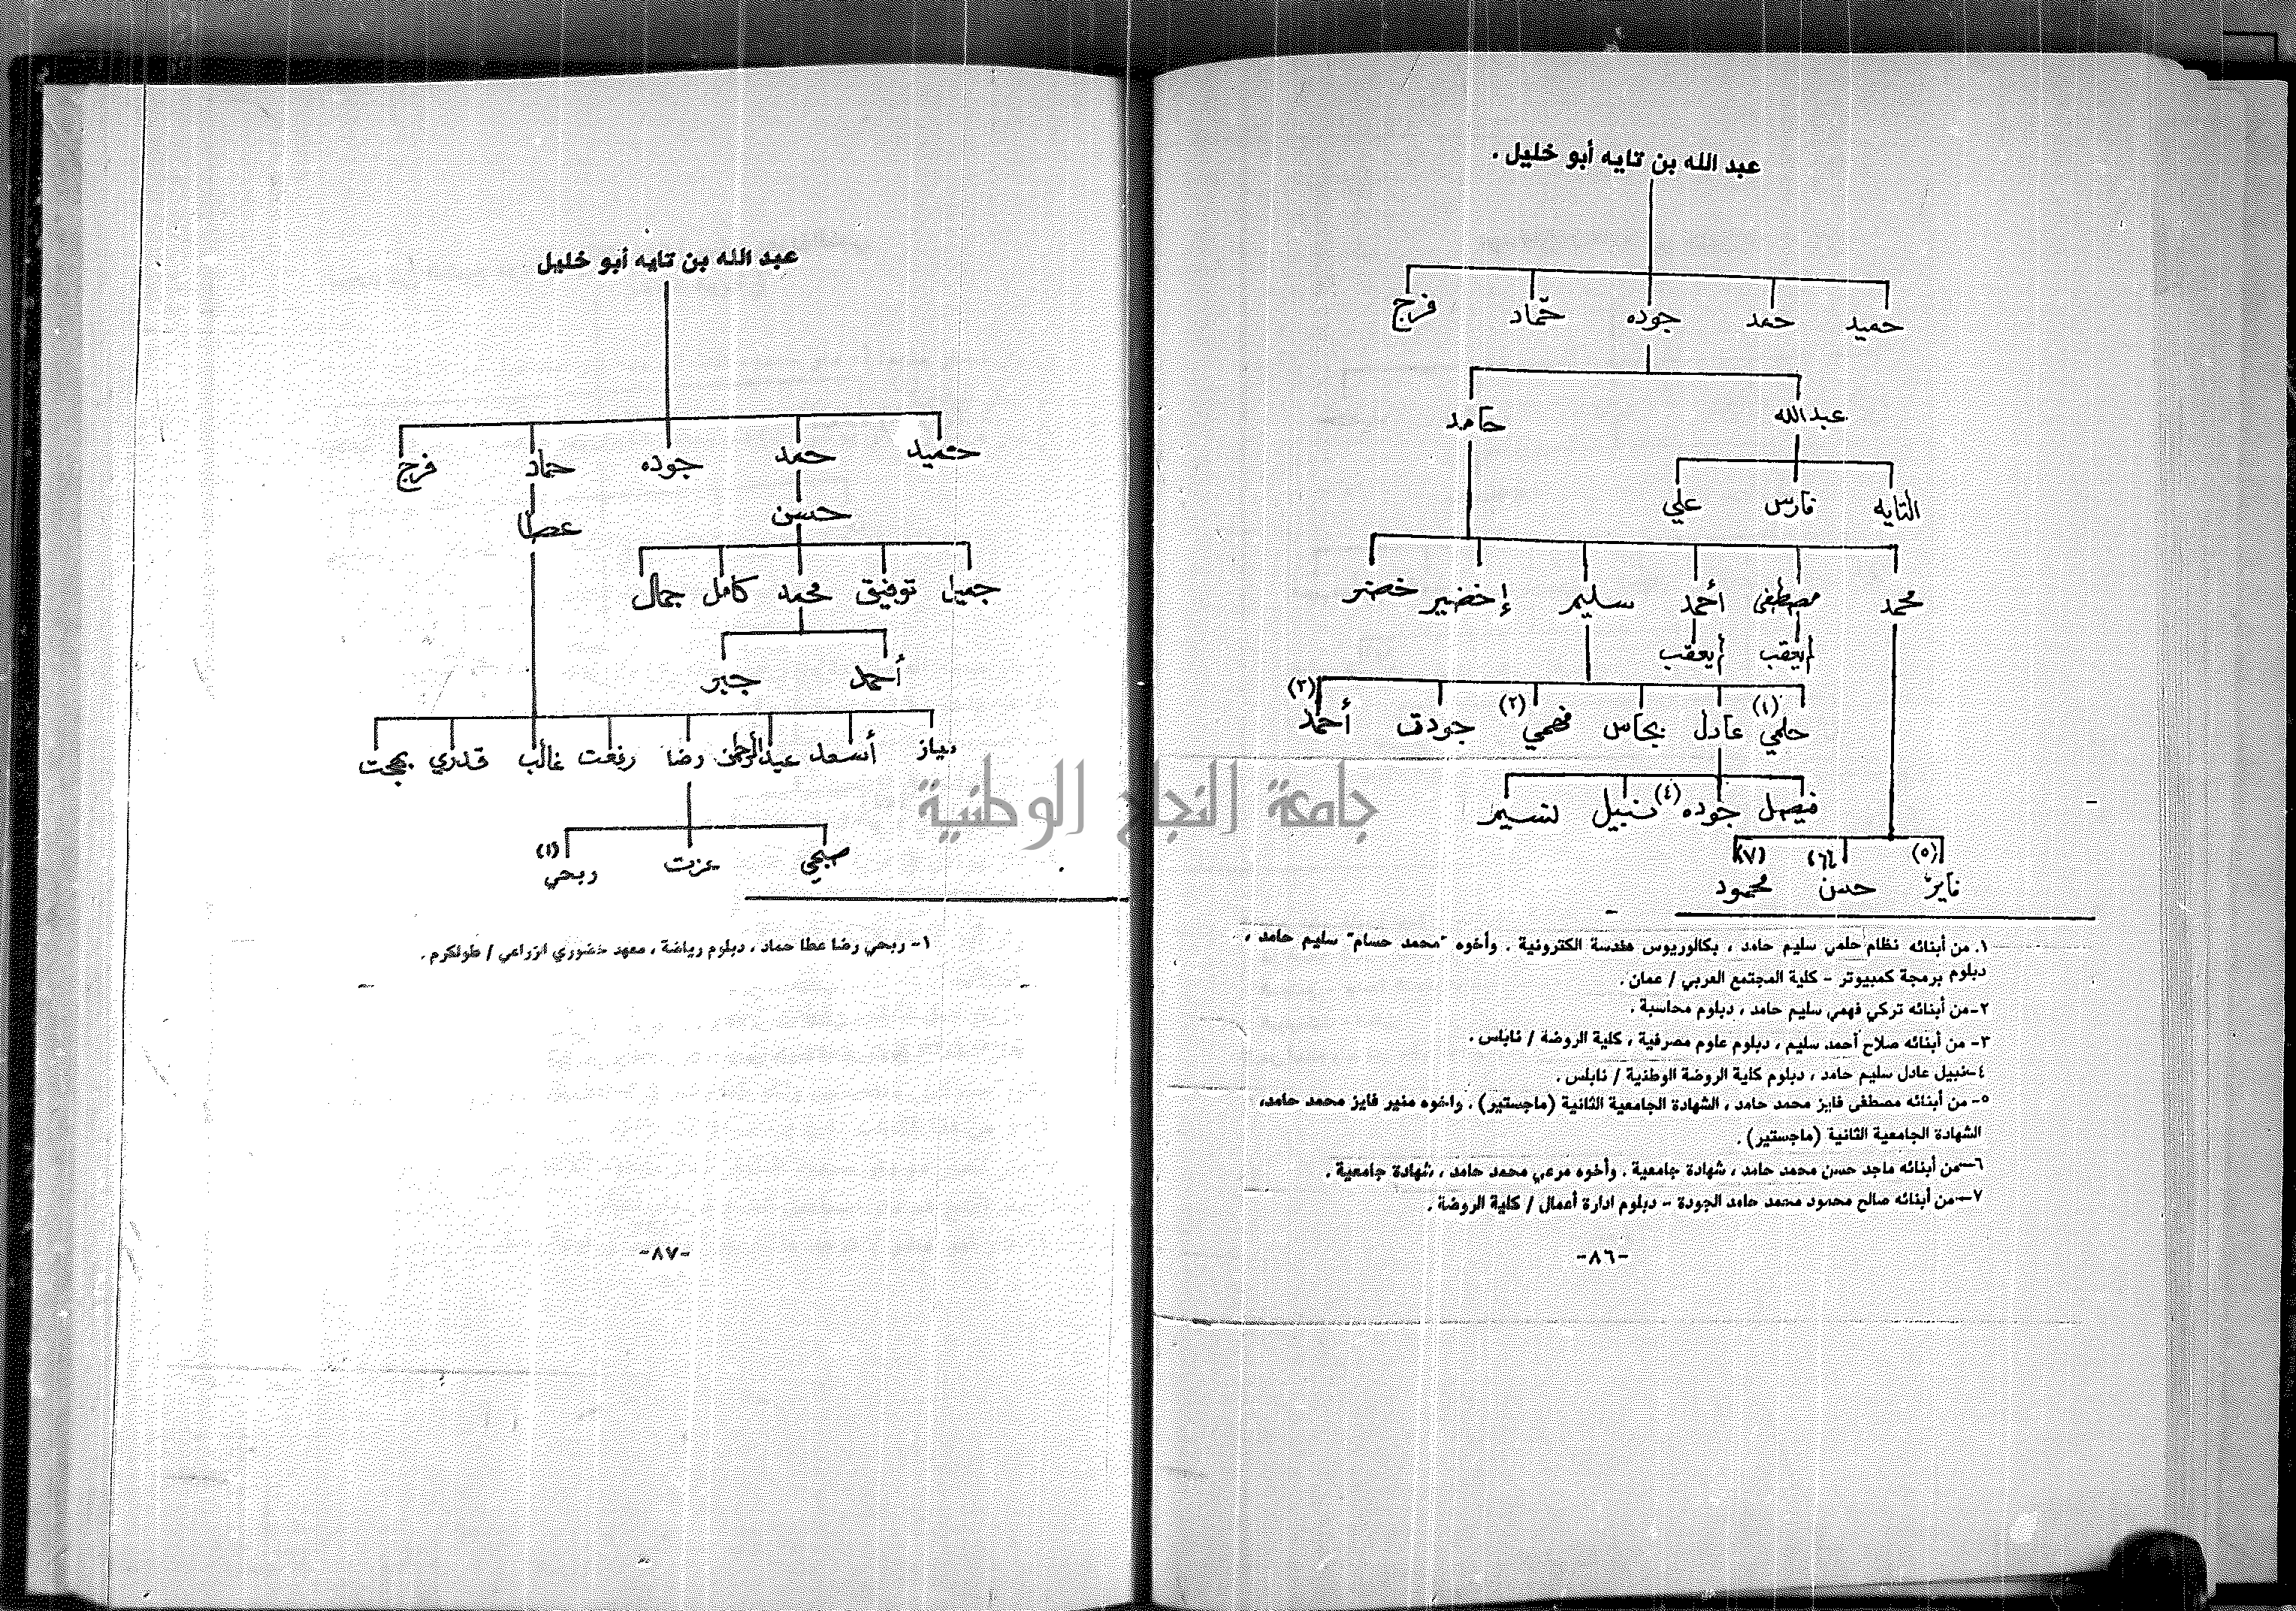 عبد الله بن تايه أبو خليل .
حميد حمد جوده حمّاد فرج
عبدالله حامد
التايه فارس علي
محمد مصطفى أحمد سليم إخضير خضر
لم يعقب لم يعقب
حلمي (١) عادل فهمي (٢) جودت أحمد (٣)
فيصل جوده نبيل (٤) نسيم
فايز (٥) حسن (٦) محمود (٧)
١. من أبنائه نظام حلمي سليم حامد ، بكالوريوس هندسة الكترونية . وأخوه "محمد حسام" سليم حامد ،
دبلوم برمجة كمبيوتر - كلية المجتمع العربي / عمان .
٢-من أبنائه تركي فهمي سليم حامد ، دبلوم محاسبة .
٣- من أبنائه صلاح أحمد سليم ، دبلوم علوم مصرفية ، كلية الروضة / نابلس .
٤-نبيل عادل سليم حامد ، دبلوم كلية الروضة الوطنية / نابلس .
٥- من أبنائه مصطفى فايز محمد حامد ، الشهادة الجامعية الثانية (ماجستير) . واخوه منير فايز محمد حامد،
الشهادة الجامعية الثانية (ماجستير) .
٦-من أبنائه ماجد حسن محمد حامد ، شهادة جامعية . وأخوه مرعي محمد حامد ، شهادة جامعية .
٧-من أبنائه صالح محمود محمد حامد الجودة - دبلوم ادارة أعمال / كلية الروضة .
-٨٦-
عبد الله بن تايه أبو خليل
حميد حمد جوده حماد فرج
حسن عطا
جميل توفيق محمد كامل جمال
أحمد جبر
نياز أسعد عبدالرحمن رضا رفعت غالب قدري بهجت
صبحي عزت ربحي (١)
١- ربحي رضا عطا حماد ، دبلوم رياضة ، معهد خضوري الزراعي / طولكرم .
-٨٧-
جامعة النجاح الوطنية